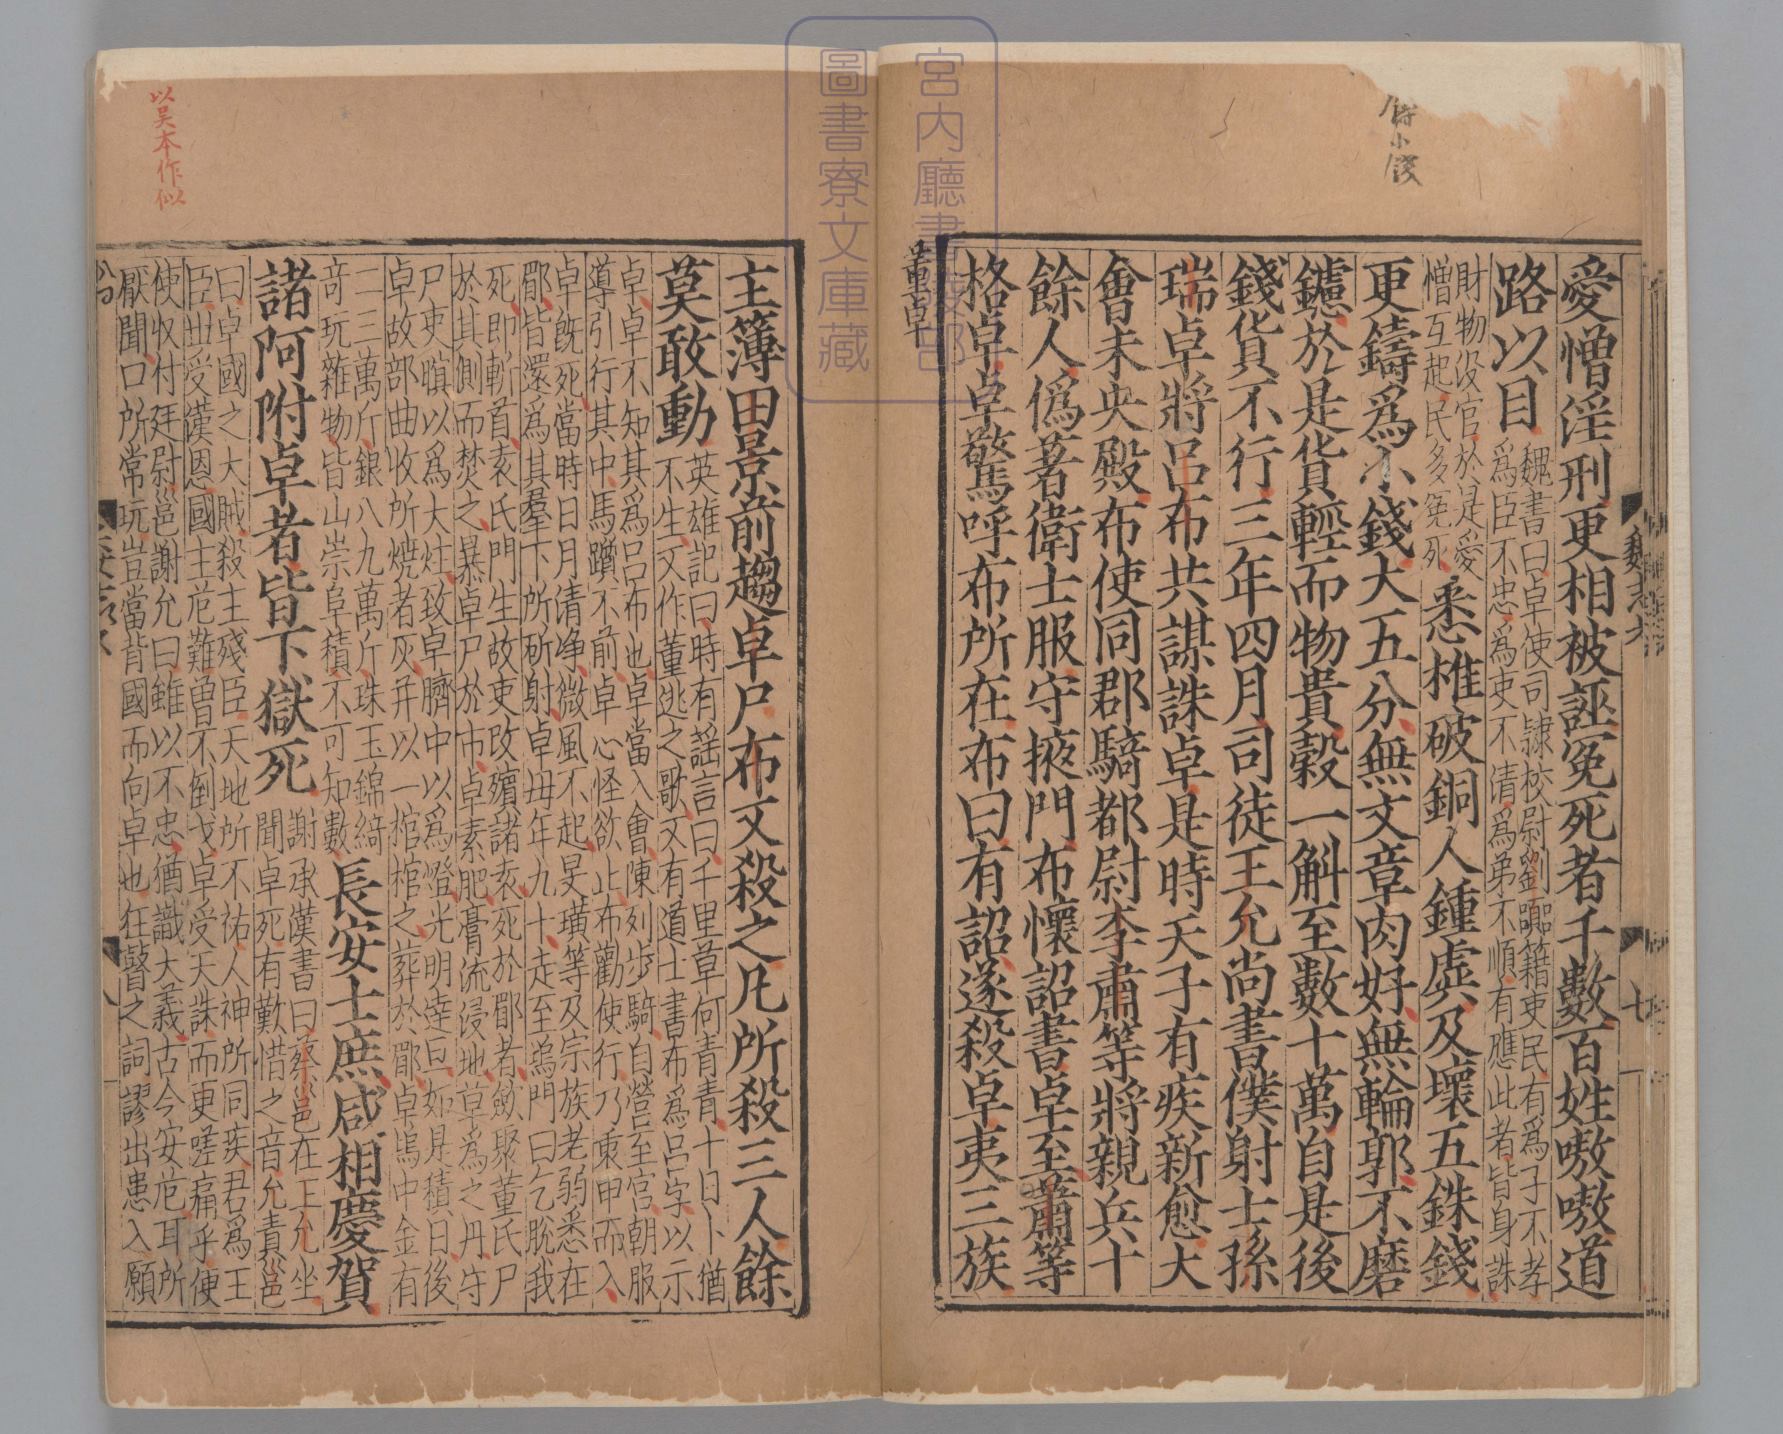 愛憎淫刑更相被誣冤死者千數百姓嗷嗷道
路以目
魏書曰卓使司隷校尉劉囂籍吏民有爲子不孝
爲臣不忠爲吏不清爲弟不順有應此者皆身誅
財物没官於是愛
憎互起民多冤死
悉椎破銅人鍾虡及壞五銖錢
更鑄爲小錢大五分無文章肉好無輪郭不磨
鑢於是貨輕而物貴穀一斛至數十萬自是後
錢貨不行三年四月司徒王允尚書僕射士孫
瑞卓將呂布共謀誅卓是時天子有疾新愈大
會未央殿布使同郡騎都尉李肅等將親兵十
餘人僞著衛士服守掖門布懷詔書卓至肅等
格卓卓驚呼布所在布曰有詔遂殺卓夷三族
董卓
魏志六
七
主簿田景前趨卓尸布又殺之凡所殺三人餘
莫敢動
英雄記曰時有謡言曰千里草何青青十日卜猶
不生又作董逃之歌又有道士書布爲呂字以示
卓卓不知其爲呂布也卓當入會陳列步騎自營至宫朝服
導引行其中馬躓不前卓心怪欲止布勸使行乃衷甲而入
卓旣死當時日月清浄微風不起旻璜等及宗族老弱悉在
郿皆還爲其羣下所斫射卓毋年九十走至塢門曰乞脫我
死即斬首袁氏門生故吏改殯諸袁死於郿者斂聚董氏尸
於其側而焚之暴卓尸於市卓素肥膏流浸地草爲之丹守
尸吏暝以爲大炷致卓臍中以爲燈光明達旦如是積日後
卓故部曲收所燒者灰并以一棺棺之葬於郿卓塢中金有
二三萬斤銀八九萬斤珠玉錦綺
奇玩雜物皆山崇阜積不可知數
長安士庶咸相慶賀
諸阿附卓者皆下獄死
謝承漢書曰蔡邕在王允坐
聞卓死有歎惜之音允責邕
曰卓國之大賊殺主殘臣天地所不祐人神所同疾君爲王
臣世受漢恩國主危難曾不倒戈卓受天誅而更嗟痛乎便
使收付廷尉邕謝允曰雖以不忠猶識大義古今安危耳所
厭聞口所常玩豈當背國而向卓也狂瞽之詞謬出患入願
以吴本作似
宮内廳書陵部
圖書寮文庫藏